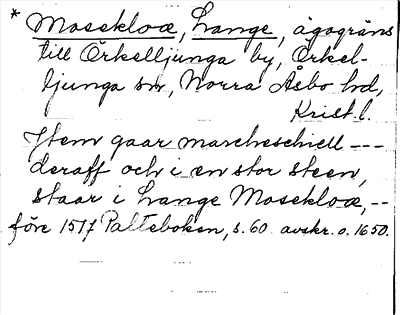 * Mosekloæ, Lange, ägogräns
till Örkelljunga by, Örkel-
ljunga sn, Norra Åsbo hd,
Krist. l.
Item gaar marcheschiell ---
deraff och i en stor steen,
staar i Lange Mosekloæ, --
före 1517 Palteboken, s. 60 avskr. o. 1650.